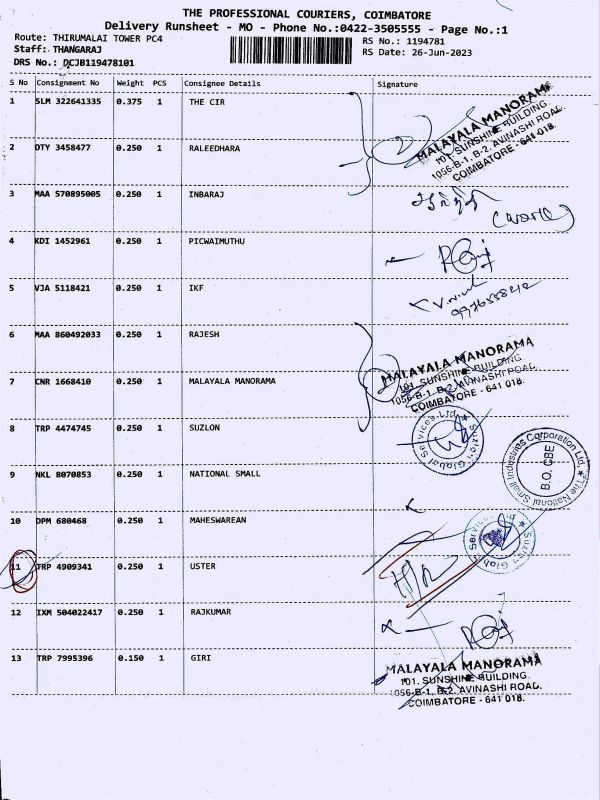 THE PROFESSIONAL COURIERS, COIMBATORE
Delivery Runsheet - MO - Phone No.:0422-3505555 - Page No.:1
Route: THIRUMALAI TOWER PC4
RS No.: 1194781
Staff: THANGARAJ
RS Date: 26-Jun-2023
DRS No.: DCJB119478101
S No Consignment No Weight PCS Consignee Details Signature
1 SLM 322641335 0.375 1 THE CIR
MALAYALA MANORAMA
101, SUNSHINE BUILDING,
1056-B-1, B-2, AVINASHI ROAD,
COIMBATORE - 641 018.
2 OTY 3458477 0.250 1 RALEEDHARA
3 MAA 570895005 0.250 1 INBARAJ
4 KDI 1452961 0.250 1 PICWAIMUTHU
5 VJA 5118421 0.250 1 IKF
6 MAA 860492033 0.250 1 RAJESH
MALAYALA MANORAMA
101, SUNSHINE BUILDING,
1056-B-1, B-2, AVINASHI ROAD,
COIMBATORE - 641 018.
7 CNR 1668410 0.250 1 MALAYALA MANORAMA
8 TRP 4474745 0.250 1 SUZLON
Suzlon Global Services Ltd.
9 NKL 8070853 0.250 1 NATIONAL SMALL
The National Small Industries Corporation Ltd.
B.O. CBE
10 DPM 680468 0.250 1 MAHESWAREAN
Suzlon Global Services Ltd
11 TRP 4909341 0.250 1 USTER
12 IXM 504022417 0.250 1 RAJKUMAR
13 TRP 7995396 0.150 1 GIRI
MALAYALA MANORAMA
101, SUNSHINE BUILDING,
1056-B-1, B-2, AVINASHI ROAD,
COIMBATORE - 641 018.